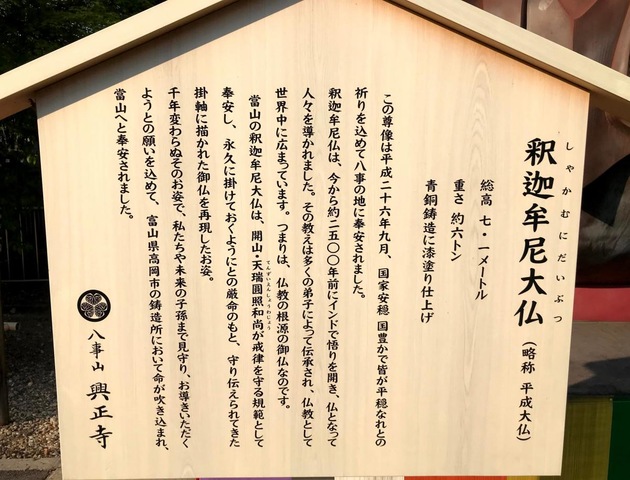 しゃかむにだいぶつ
釈迦牟尼大仏(略称 平成大仏)
総高 七・一メートル
重さ 約六トン
青銅鋳造に漆塗り仕上げ
この尊像は平成二十六年九月、国家安穏 国豊かで皆が平穏なれとの
祈りを込めて八事の地に奉安されました。
釈迦牟尼仏は、今から約二五〇〇年前にインドで悟りを開き、仏となって
人々を導かれました。その教えは多くの弟子によって伝承され、仏教として
世界中に広まっています。つまりは、仏教の根源の御仏なのです。
てんずいえんしょうわじょう
當山の釈迦牟尼大仏は、開山・天瑞圓照和尚が戒律を守る規範として
奉安し、永久に掛けておくようにとの厳命のもと、守り伝えられてきた
掛軸に描かれた御仏を再現したお姿。
千年変わらぬそのお姿で、私たちや未来の子孫まで見守り、お導きいただく
ようとの願いを込めて、富山県高岡市の鋳造所において命が吹き込まれ、
當山へと奉安されました。
八事山 興正寺